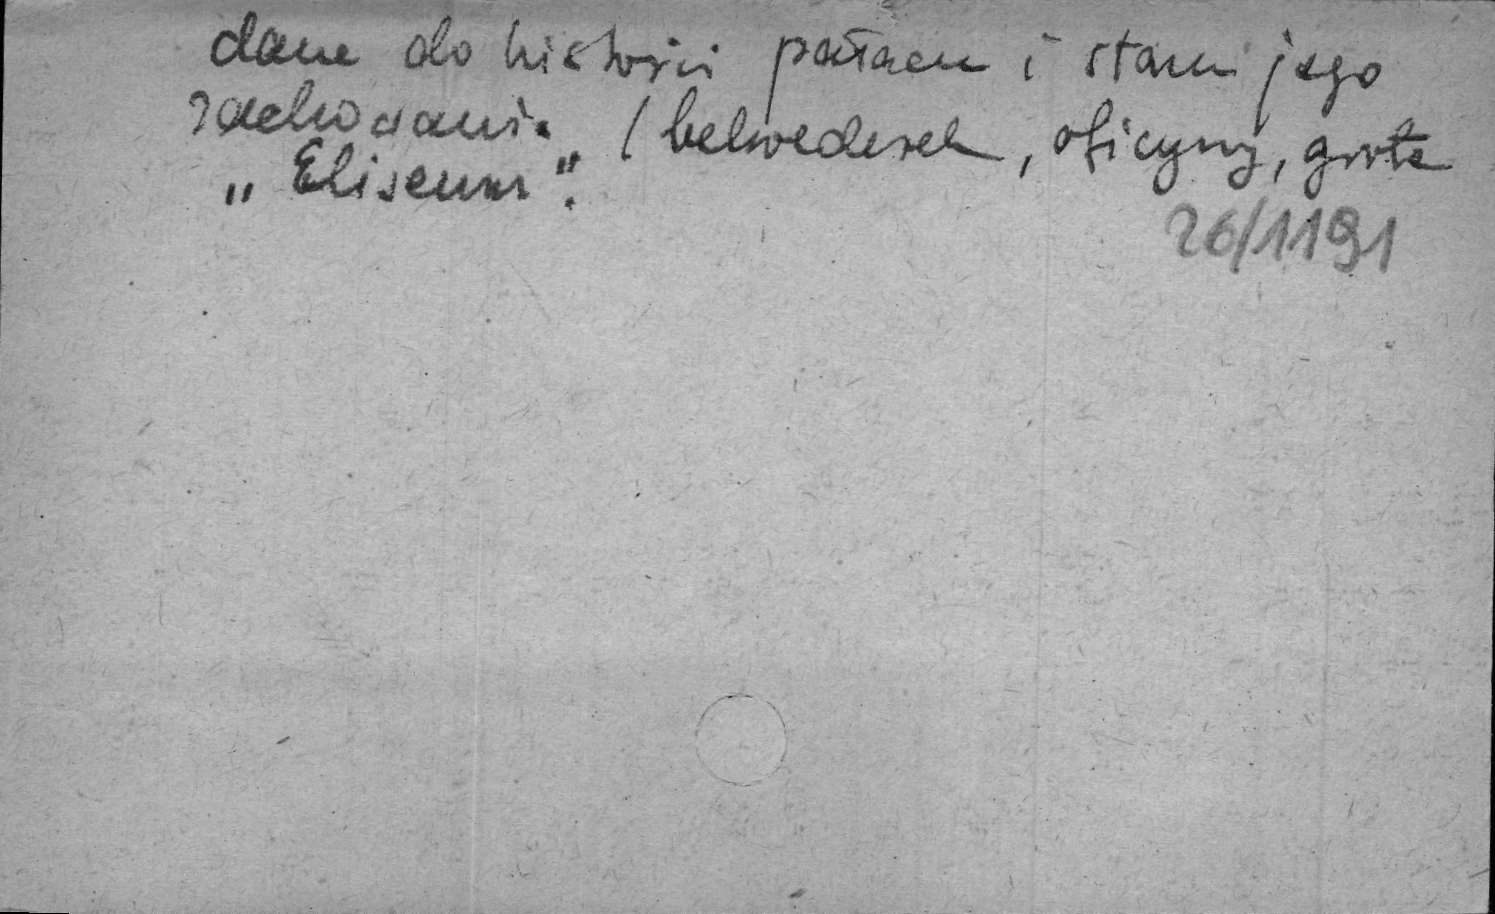 dane do historii pałacu i stanu jego
zachowania. (belwederek, oficyny, grota
„Eliseum”.
26/1191